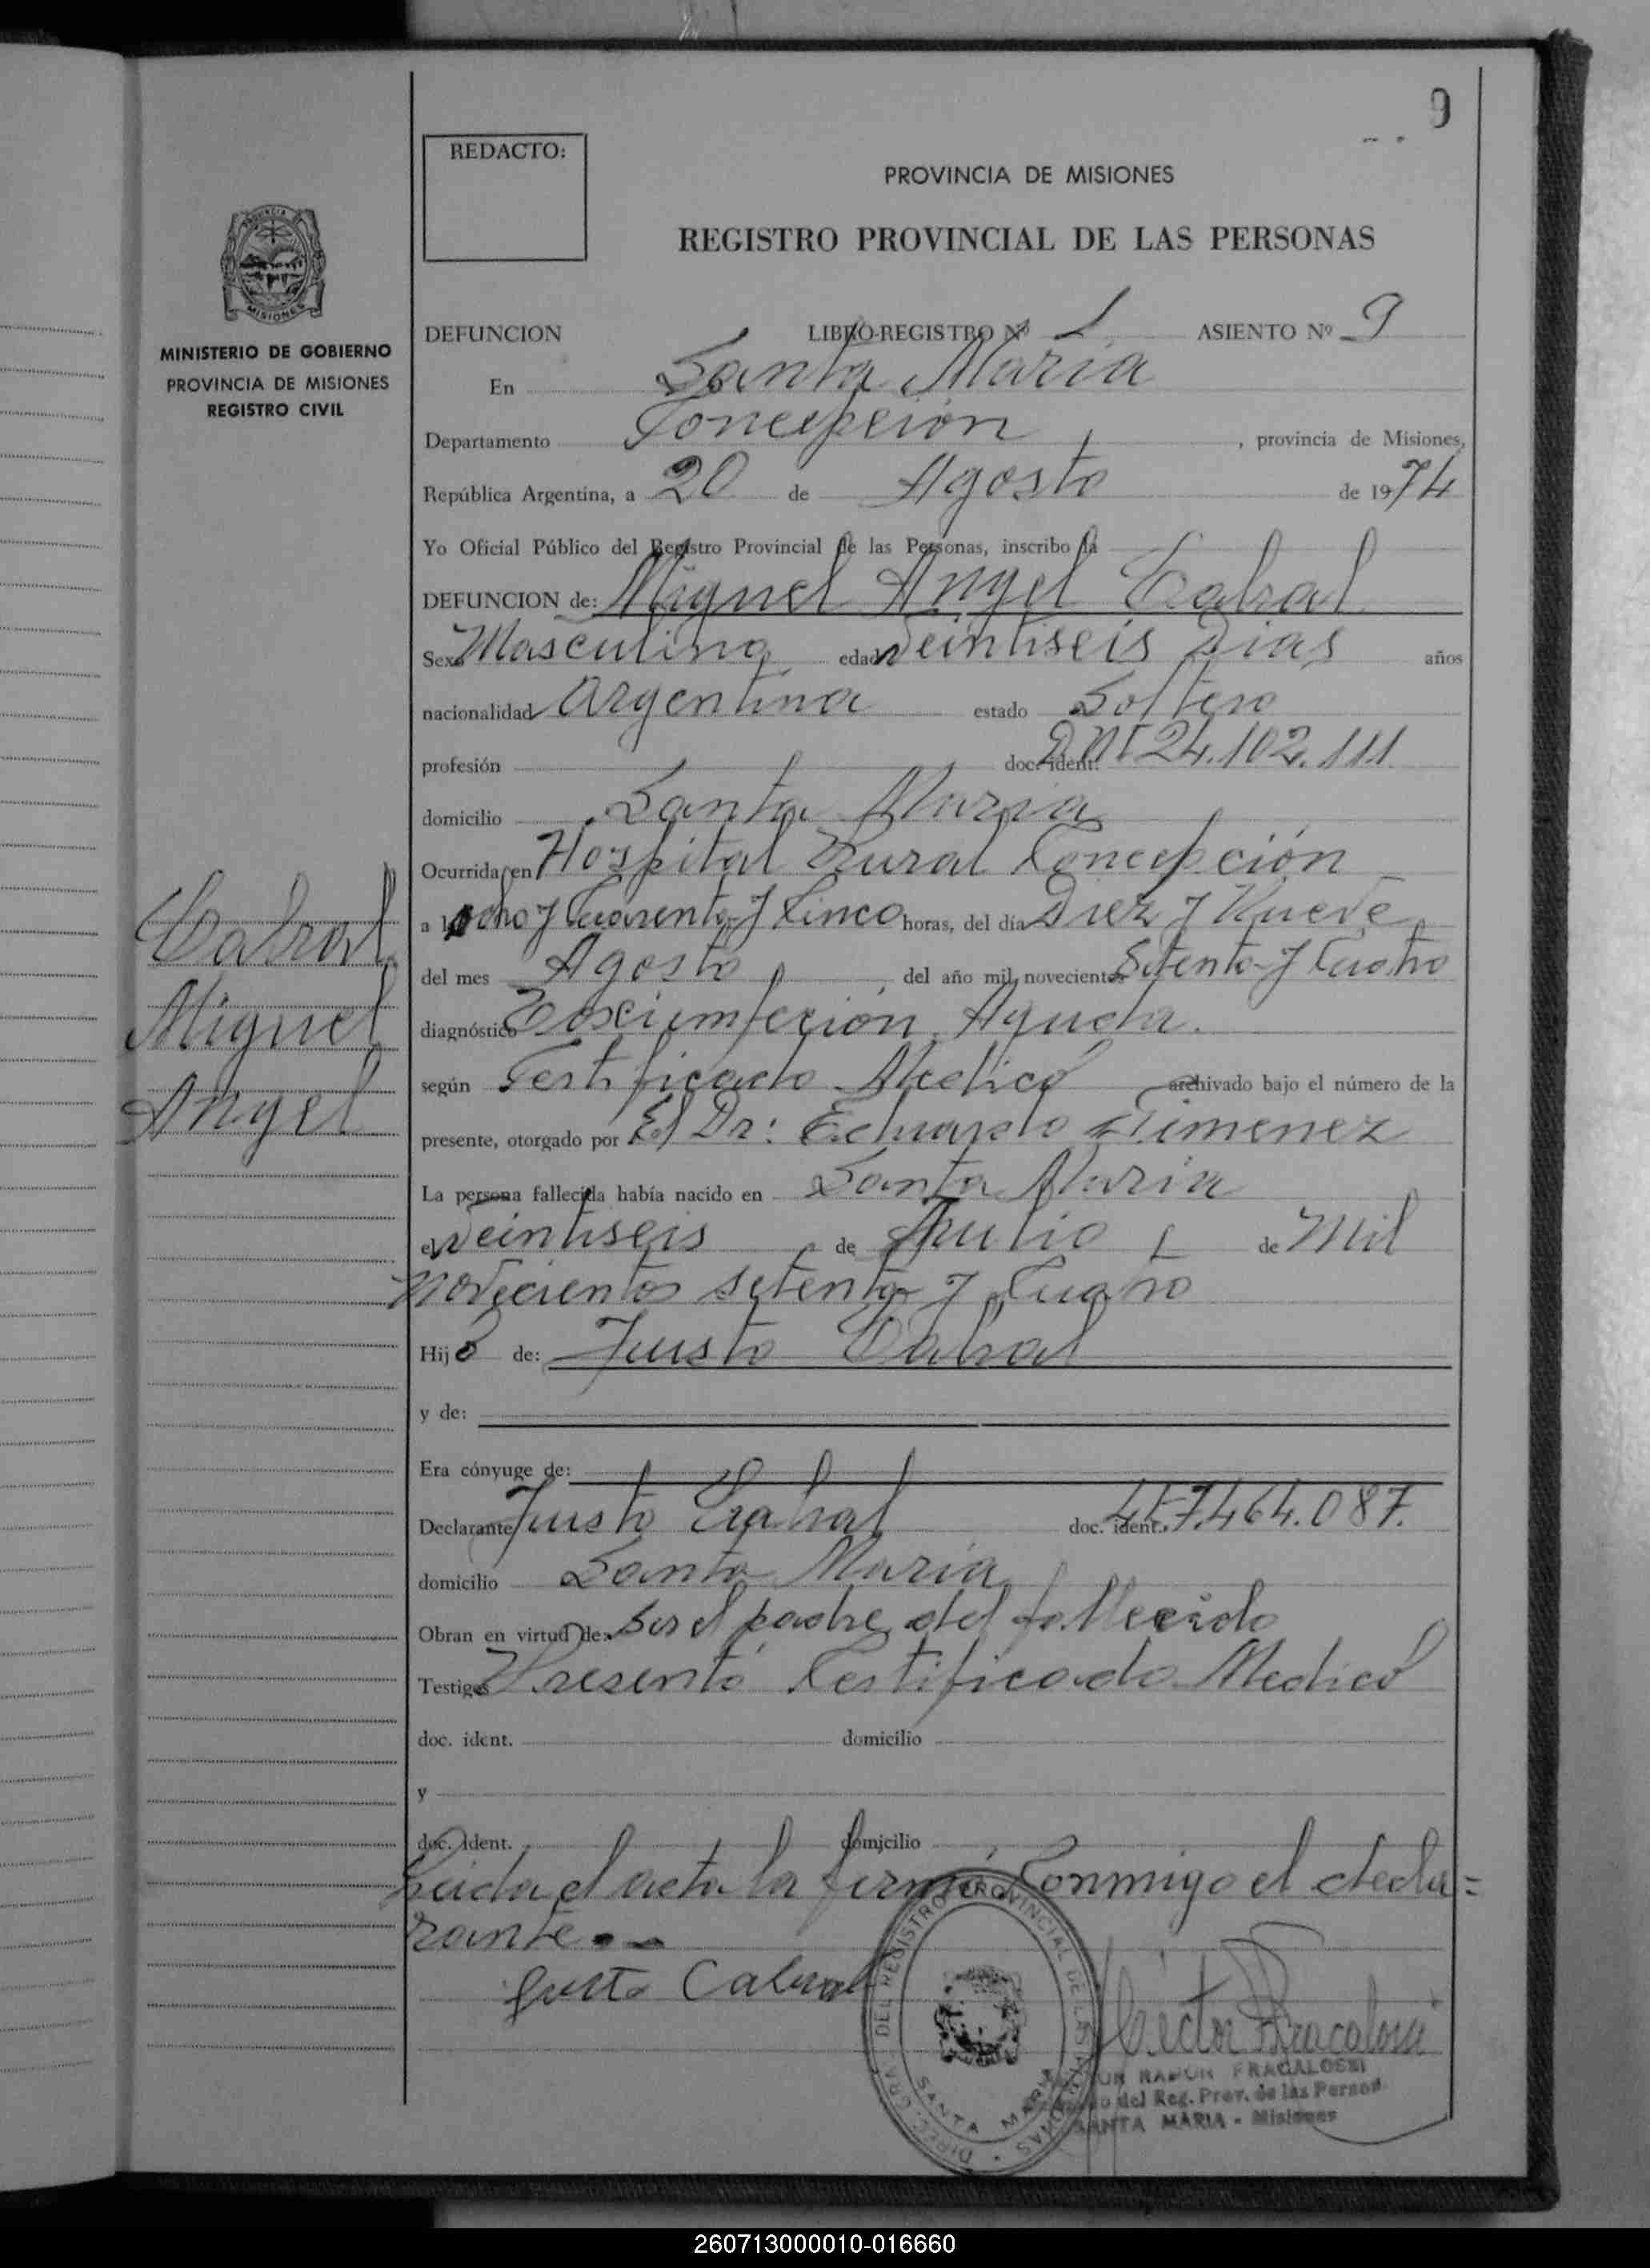 9
REDACTO:
PROVINCIA DE MISIONES
REGISTRO PROVINCIAL DE LAS PERSONAS
MISIONES
MINISTERIO DE GOBIERNO
PROVINCIA DE MISIONES
REGISTRO CIVIL
DEFUNCION LIBRO-REGISTRO Nº 1 ASIENTO Nº 9
En Santa Maria
Departamento Concepción, provincia de Misiones,
República Argentina, a 20 de Agosto de 1974
Yo Oficial Público del Registro Provincial de las Personas, inscribo la
DEFUNCION de: Miguel Angel Cabral
Sexo Masculino edad Veintiseis Dias años
nacionalidad Argentina estado Soltero
profesión doc. ident. DNI 24.102.111
domicilio Santa Maria
Ocurrida en Hospital Rural Concepción
a las ocho y Cuarenta y Cinco horas, del día Diez y Nueve
del mes Agosto, del año mil novecientos Setenta y Cuatro
diagnóstico Toxiinfección Aguda.
según Certificado Medico archivado bajo el número de la
presente, otorgado por El Dr: Eduardo Gimenez
La persona fallecida había nacido en Santa Maria
el Veintiseis de Julio de Mil
Novecientos setenta y Cuatro
Hijo de: Justo Cabral
y de:
Era cónyuge de:
Declarante Justo Cabral doc. ident. 7.464.087.
domicilio Santa Maria
Obran en virtud de: Ser el padre del fallecido
Testigos Presentó Certificado Medico
doc. ident. domicilio
y
doc. ident. domicilio
Leida el acta la firma Conmigo el decla=
rante.-
Justo Cabral
Cabral
Miguel
Angel
DIREC. GRAL. DEL REGISTRO PROVINCIAL DE LAS PERSONAS
SANTA MARIA
Hector Fracalossi
RAMON FRACALOSSI
del Reg. Prov. de las Person
SANTA MARIA - Misiones
260713000010-016660